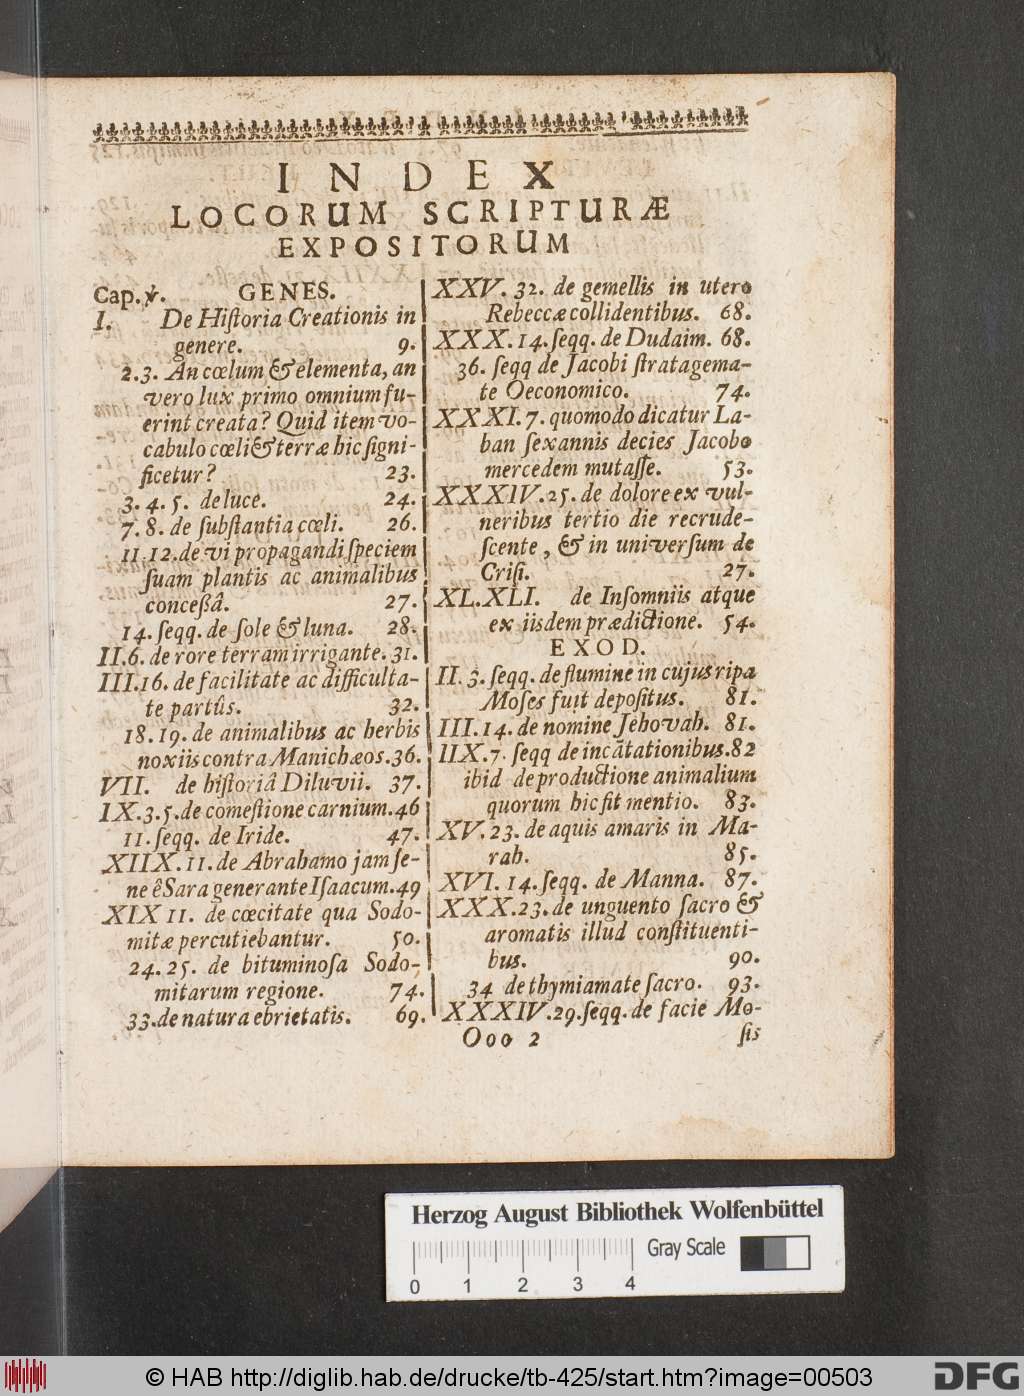 INDEX
LOCORUM SCRIPTURÆ
EXPOSITORUM
Cap. ℣. GENES.
I. De Hiſtoria Creationis in
genere. 9.
2.3. An cœlum & elementa, an
vero lux primo omnium fu-
erint creata? Quid item vo-
cabulo cœli & terræ hic ſigni-
ficetur? 23.
3. 4. 5. de luce. 24.
7. 8. de ſubſtantia cœli. 26.
11.12. de vi propagandi ſpeciem
ſuam plantis ac animalibus
conceßâ. 27.
14. ſeqq. de ſole & luna. 28.
II.6. de rore terram irrigante. 31.
III.16. de facilitate ac difficulta-
te partûs. 32.
18.19. de animalibus ac herbis
noxiis contra Manichæos. 36.
VII. de hiſtoriâ Diluvii. 37.
IX.3.5. de comeſtione carnium. 46
11. ſeqq. de Iride. 47.
XIIX.11. de Abrahamo jam ſe-
ne ê Sara generante Iſaacum. 49
XIX 11. de cœcitate qua Sodo-
mitæ percutiebantur. 50.
24. 25. de bituminoſa Sodo-
mitarum regione. 74.
33. de natura ebrietatis. 69.
XXV. 32. de gemellis in utero
Rebeccæ collidentibus. 68.
XXX. 14. ſeqq. de Dudaim. 68.
36. ſeqq de Jacobi ſtratagema-
te Oeconomico. 74.
XXXI. 7. quomodo dicatur La-
ban ſex annis decies Jacobo
mercedem mutaſſe. 53.
XXXIV. 25. de dolore ex vul-
neribus tertio die recrude-
ſcente, & in univerſum de
Criſi. 27.
XL. XLI. de Inſomniis atque
ex iisdem prædictione. 54.
EXOD.
II. 3. ſeqq. de flumine in cujus ripa
Moſes fuit depoſitus. 81.
III. 14. de nomine Jehovah. 81.
IIX. 7. ſeqq de incātationibus. 82
ibid de productione animalium
quorum hic fit mentio. 83.
XV. 23. de aquis amaris in Ma-
rah. 85.
XVI. 14. ſeqq. de Manna. 87.
XXX. 23. de unguento ſacro &
aromatis illud conſtituenti-
bus. 90.
34 de thymiamate ſacro. 93.
XXXIV. 29. ſeqq. de facie Mo-
Ooo 2 ſis
Herzog August Bibliothek Wolfenbüttel
Gray Scale
0 1 2 3 4
© HAB http://diglib.hab.de/drucke/tb-425/start.htm?image=00503
DFG